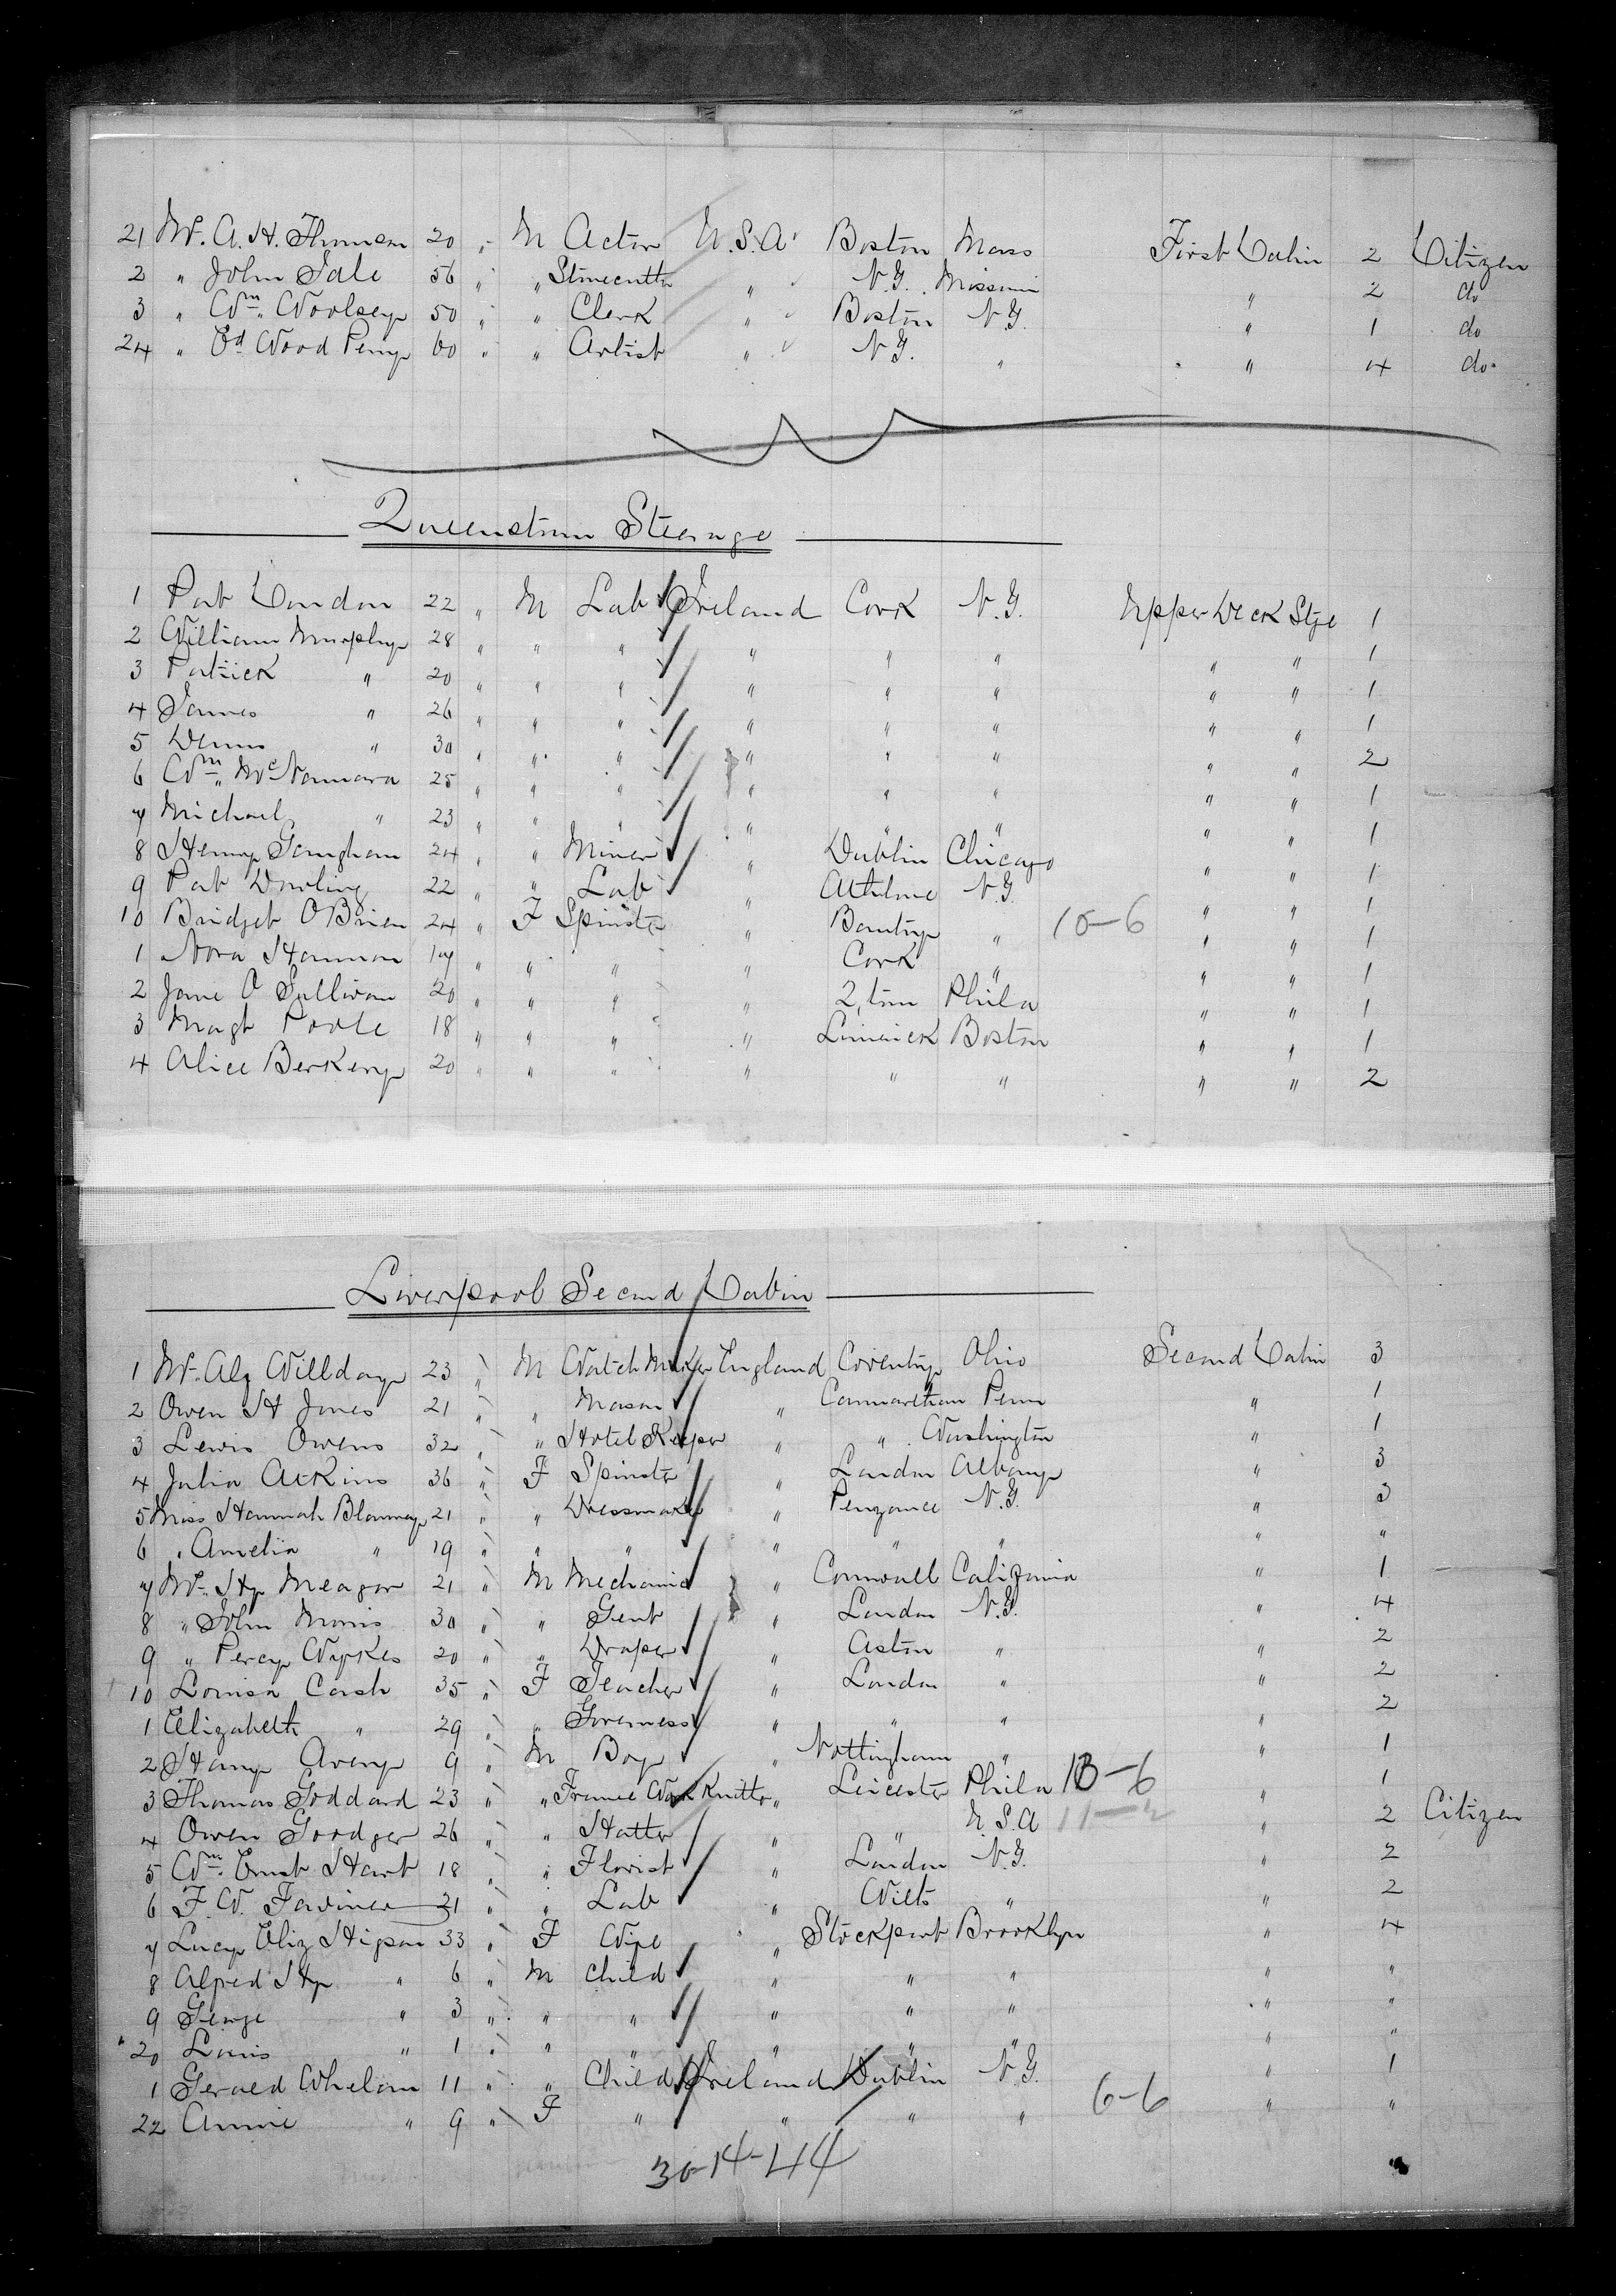 21 Mr. A. H. Thomson 20 " M Actor U.S.A. Boston Mass First Cabin 2 Citizen
2 " John Sale 56 " " Stonecutter " N.Y. Missouri " 2 do
3 " Wm. Woolsey 50 " " Clerk " Boston N.Y. " 1 do
24 " Ed Wood Perry 60 " " Artist " N.Y. " " 4 do.
Queenstown Steerage
1 Pat Condon 22 " M Lab Ireland Cork N.Y. Upper Deck Stge 1
2 William Murphy 28 " " " " " " " " 1
3 Patrick " 20 " " " " " " " " 1
4 James " 26 " " " " " " " " 1
5 Dennis " 30 " " " " " " " " 2
6 Wm. McNamara 25 " " " " " " " " 1
7 Michael " 23 " " " " " " " " 1
8 Henry Gangham 24 " " Miner " Dublin Chicago " " 1
9 Pat Dowling 22 " " Lab " Athlone N.Y. " " 1
10 Bridget O Brien 24 " F Spinster " Bantry " 10-6 " " 1
1 Nora Hannon 17 " " " " Cork " " " 1
2 Jane O Sullivan 20 " " " " Q,town Phila " " 1
3 Magt Poole 18 " " " " Limerick Boston " " 1
4 Alice Berkery 20 " " " " " " " " 2
Liverpool Second Cabin
1 Mr. Alf Willday 23 " M Watch Maker England Coventry Ohio Second Cabin 3
2 Owen H Jones 21 " " Mason " Carmarthan Penn " 1
3 Lewis Owens 32 " " Hotel Keeper " " Washington " 1
4 Julia Atkins 36 " F Spinster " London Albany " 3
5 Miss Hannah Blamey 21 " " Dressmaker " Penzance N.Y. " 3
6 " Amelia " 19 " " " " " " " "
7 Mr. Hy Meagor 21 " M Mechanic " Cornwall California " 1
8 " John Morris 30 " " Gent " London N.Y. " 4
9 " Percy Wykes 20 " " Draper " Aston " " 2
10 Louisa Cash 35 " F Teacher " London " " 2
1 Elizabeth " 29 " " Governess " " " " 2
2 Harry Avery 9 " M Boy " Nottingham " " 1
3 Thomas Goddard 23 " " Frame Work Knitter " Leicester Phila 10-6 " 1
4 Owen Goodger 26 " " Hatter " " U.S.A " 2 Citizen
5 Wm. Ernst Hart 18 " " Florist " London N.Y. " 2
6 F. W. 21 " " Lab " Wilts " " 2
7 Lucy Eliz Higson 33 " F Wife " Stockport Brooklyn " 4
8 Alfred Hy " 6 " M Child " " " " "
9 George " 3 " " " " " " " "
20 Louis " 1 " " " " " " " "
1 Gerald Whelan 11 " " Child Ireland Dublin N.Y. " 1
22 Annie " 9 " F " " " " 6-6 " "
30-14-44